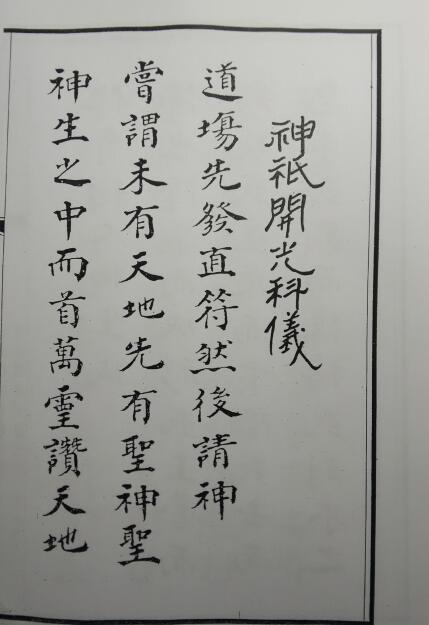 神祇開光科儀
道場先發直符然後請神
嘗謂未有天地先有聖神聖
神生之中而首萬霊讚天地